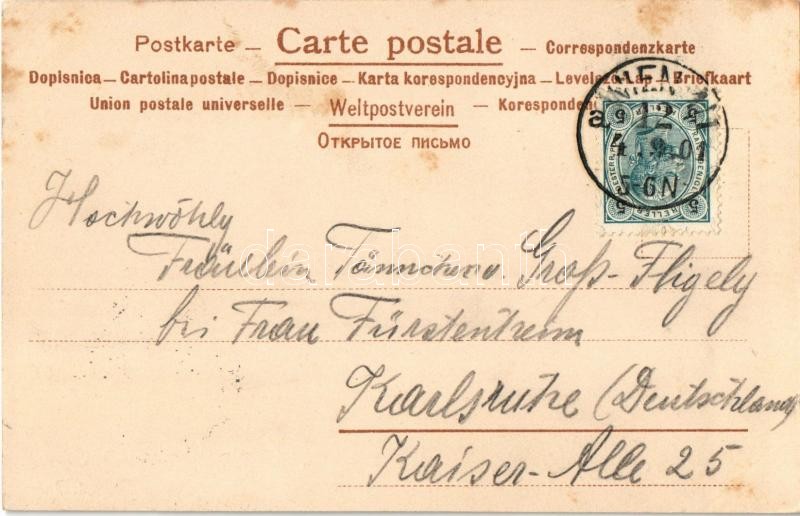 Postkarte – Carte postale – Correspondenzkarte
Dopisnica – Cartolina postale – Dopisnice – Karta korespondencyjna – Levelező-Lap – Briefkaart
Union postale universelle – Weltpostverein –
Открытое письмо
WIEN
12
4.9.01
5-6N
5 5
5 HELLER 5
Hochwöhly
Fräulein Tännchen v. Groß-Fligely
bei Frau Fürstenheim
Karlsruhe (Deutschland)
Kaiser-Alle 25
darabanth